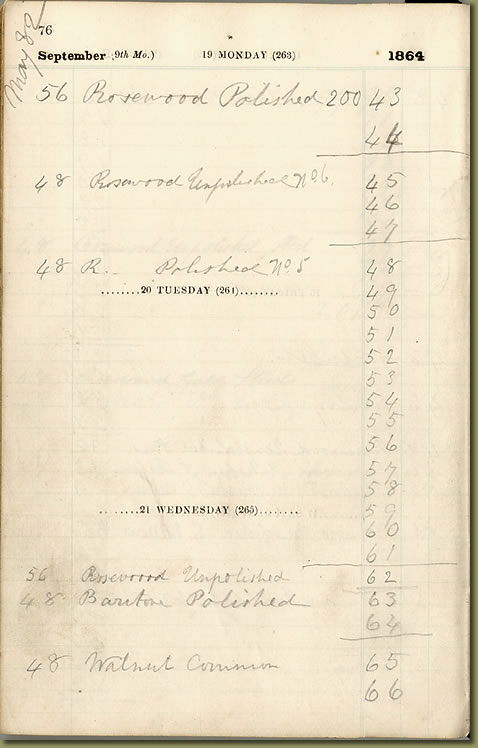 76
May 82
September (9th Mo.) 19 MONDAY (263) 1864
56 Rosewood Polished 200 43
44
48 Rosewood Unpolished No. 6. 45
46
47
48 R. Polished No. 5 48
........20 TUESDAY (264)........ 49
50
51
52
53
54
55
56
57
58
........21 WEDNESDAY (265)........ 59
60
61
56 Rosewood Unpolished 62
48 Baritone Polished 63
64
48 Walnut Common 65
66